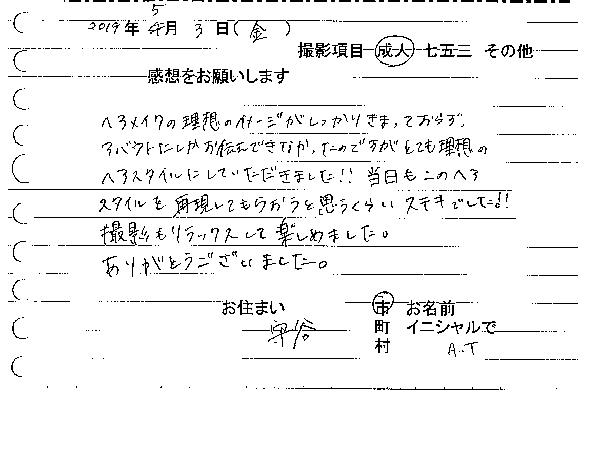 5
2019年 4月 3日(金)
撮影項目 成人 七五三 その他
感想をお願いします
ヘアメイクの理想のイメージがしっかりきまっておらず、
アバウトにしかお伝えできなかったのですがとても理想の
ヘアスタイルにしていただきました!! 当日もこのヘア
スタイルを再現してもらおうと思うくらいステキでした!!
撮影もリラックスして楽しめました。
ありがとうございました。
お住まい 市 お名前
守谷 町 イニシャルで
村 A.T